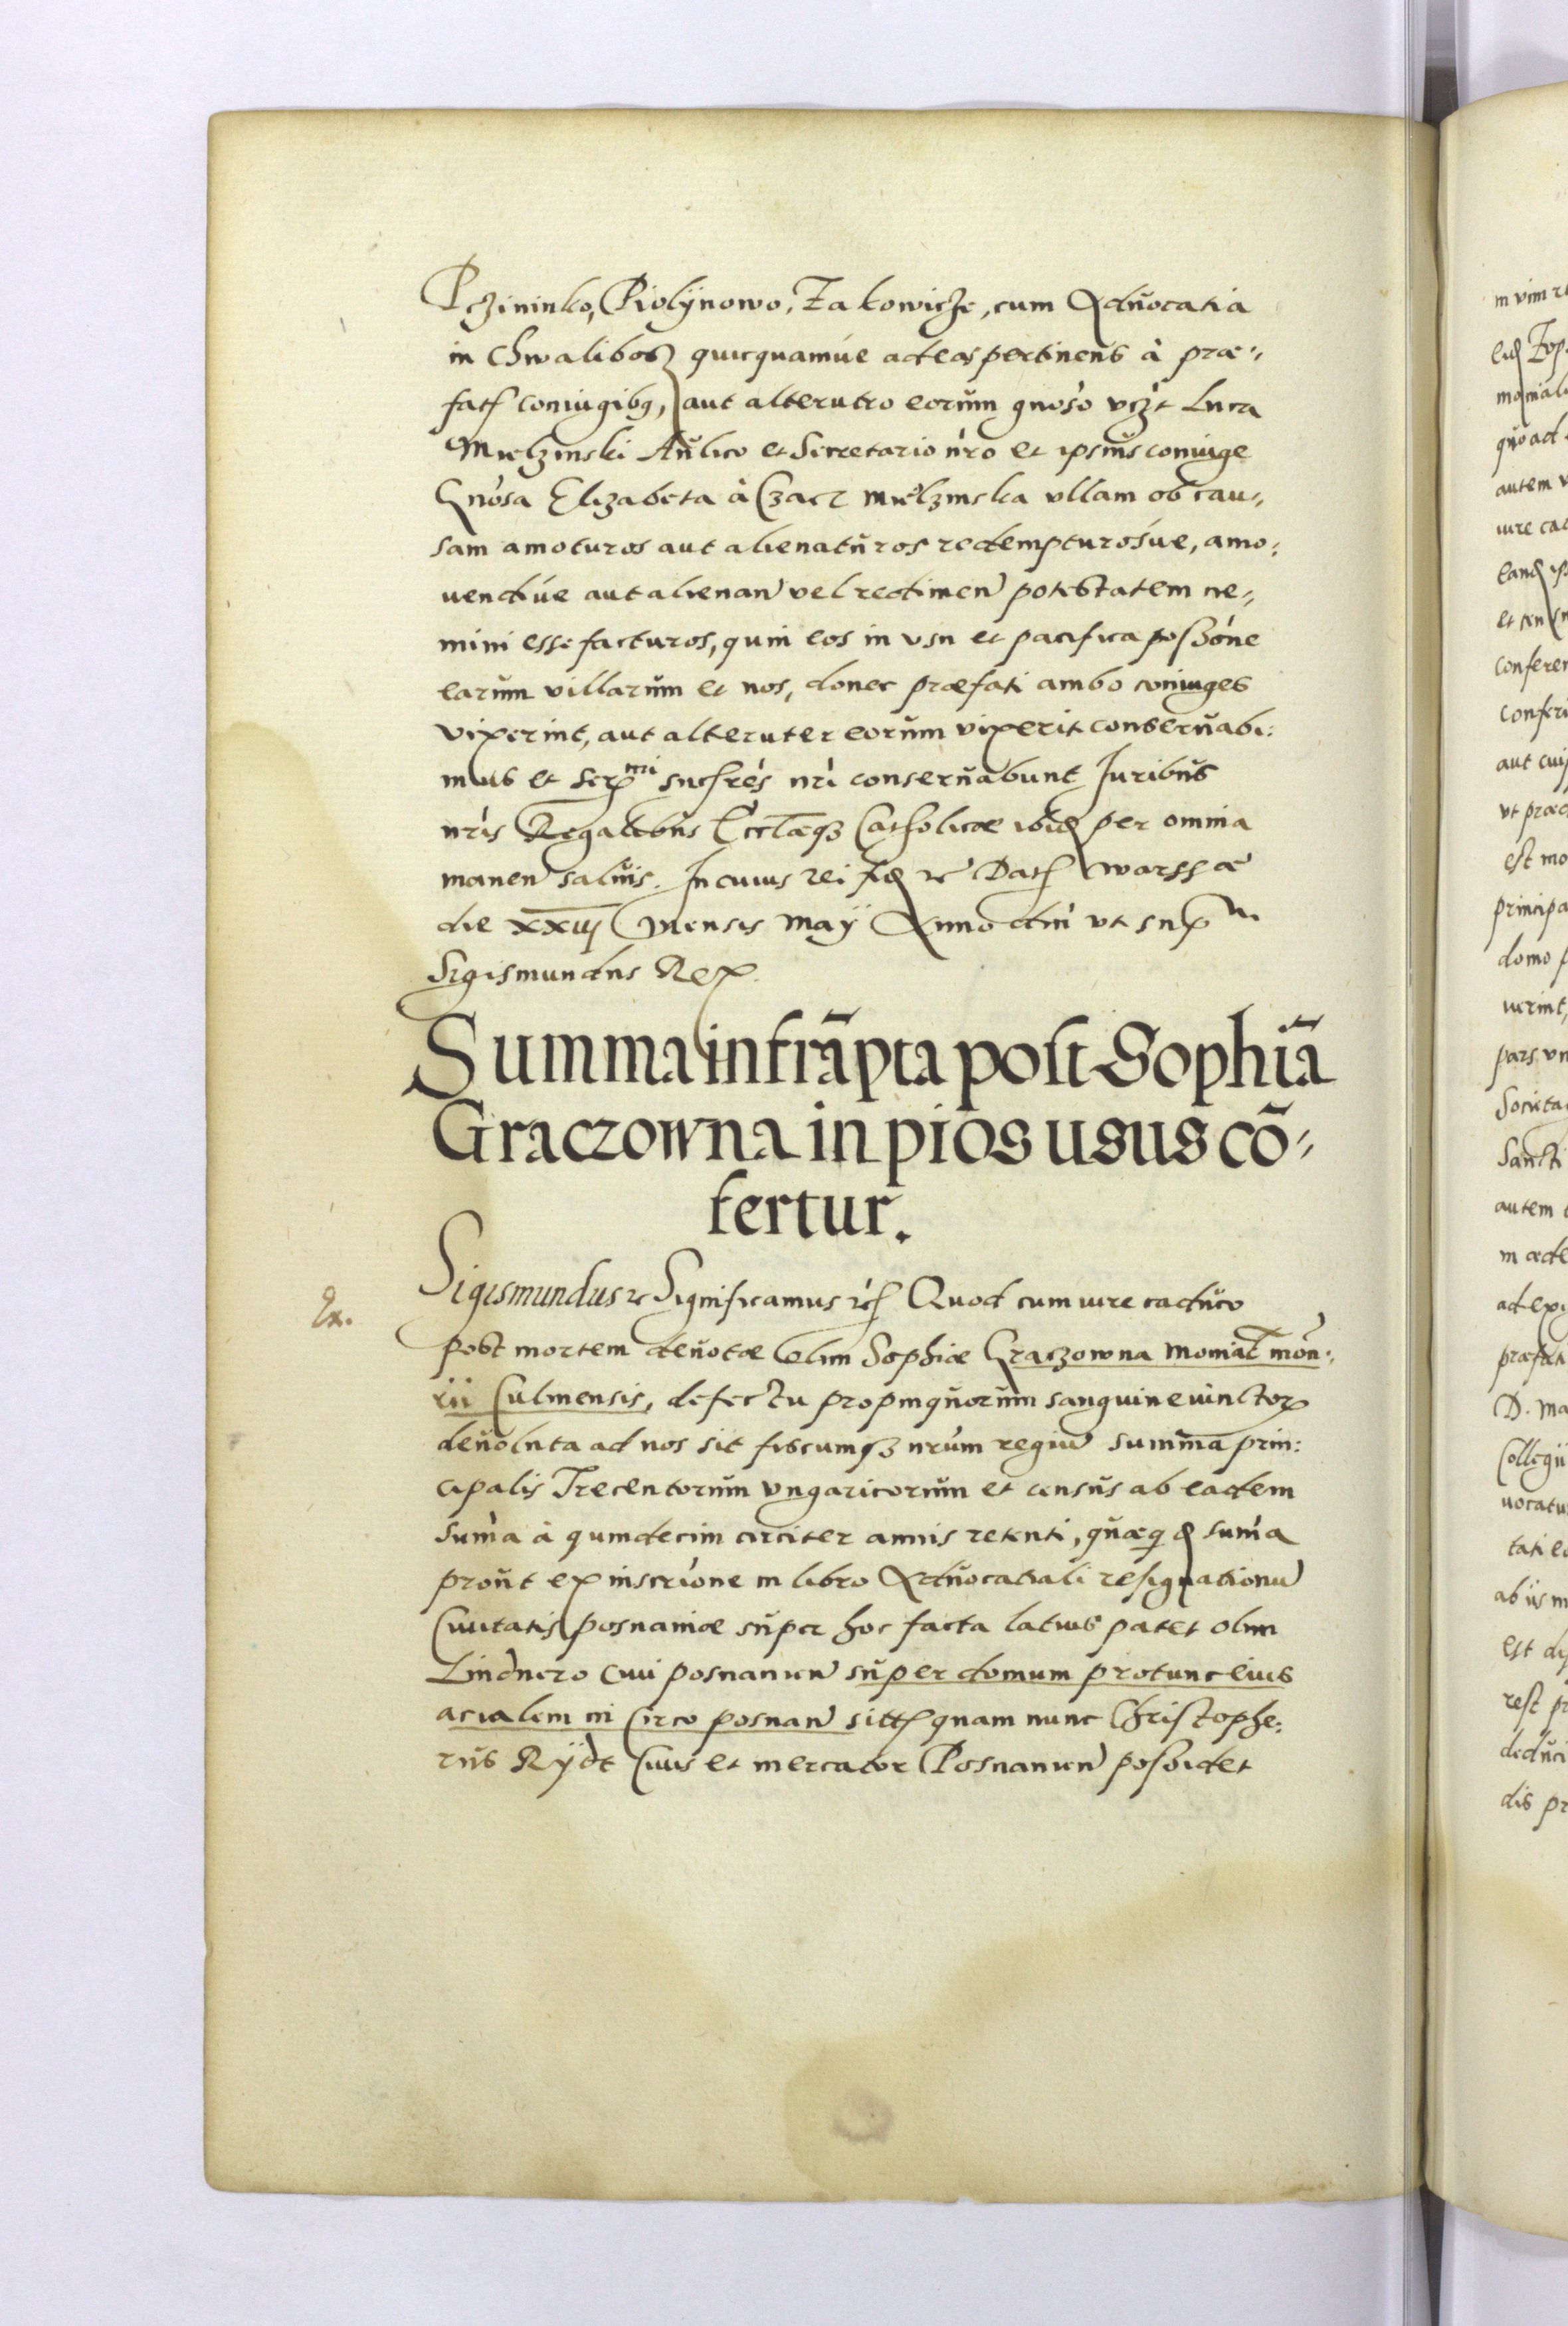 Pczininko, Piolÿnowo, Zakowicze, cum Aduocatia
in Chwalibog quicquamúe ad eas pertinens à præ=
fatis coniugibus, aut alterutro eorum gnoso vczt Luca
Mielzinski Aulico et Secretario nro et ipsius coniuge
Gnosa Elizabeta à Czacz Mielzinska vllam ob cau=
sam amoturos aut alienaturos redempturosúe, amo=
uendiúe aut alienan vel redimen potestatem ne=
mini esse facturos, quin eos in vsu et pacifica possione
earum villarum et nos, donec præfati ambo coniuges
vixerint, aut alteruter eorum vixerit conseruabi=
mus et Sermi sucsrés nri conseruabunt Juribus
nris Regalibus Ecclæq3 Catholicæ ibid per omnia
manen saluis. In cuius rei fid &c Dat Warssæ
die XXIIJ Mensis Maÿ Anno dni vt supra
Sigismundus Rex.
Summa infrāpta post Sophiā
Graczowna in pios usus cō=
fertur.
Ex.
Sigismundus &c Significamus &c Quod cum iure caduco
post mortem deuotæ olim Sophiæ Graczowna Monial mon=
rii Culmensis, defectu propinquorum sanguine iunctor
deuoluta ad nos sit fiscumq3 nrum regiu summa prin=
cipalis Trecentorum vngaricorum et census ab eadem
suma à quindecim circiter annis retenti, quæquid suma
prout ex inscrione in libro Aduocatiali resignationu
Ciuitatis posnaniæ super hoc facta latius patet olim
Lindnero Ciui posnanien super domum protunc eius
acialem in Circo posnan sitt quam nunc Christophe=
rus Rÿdt Ciuis et mercator Posnanien possidet